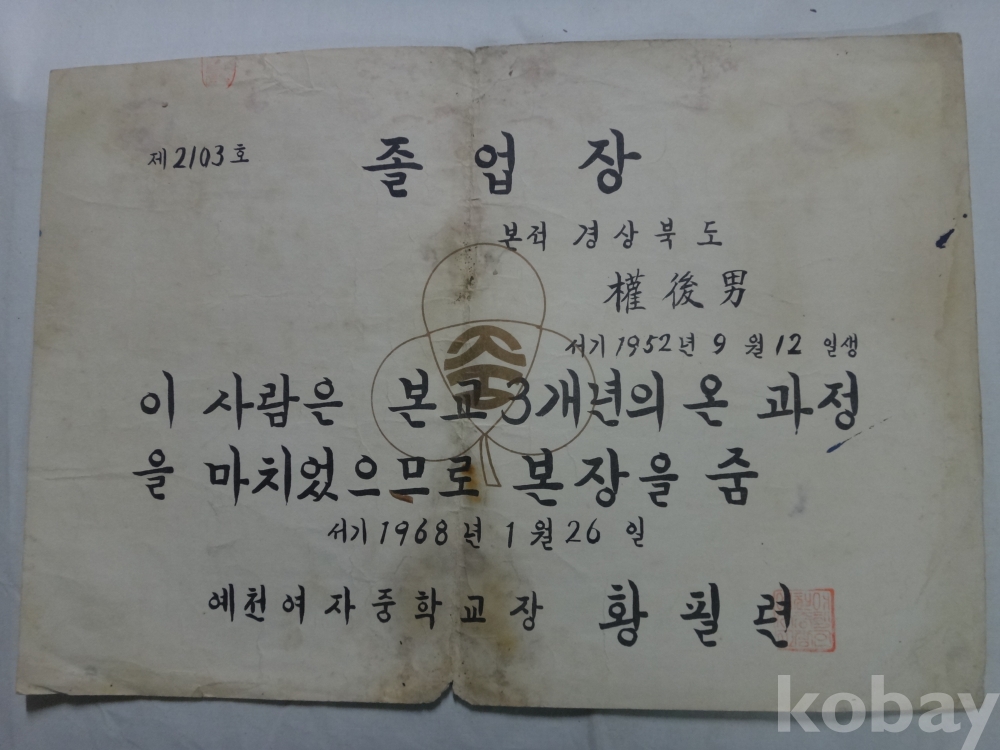 제2103호
졸업장
본적 경상북도
權後男
서기 1952년 9월 12일생
중
이 사람은 본교 3개년의 온 과정
을 마치었으므로 본장을 줌
서기 1968년 1월 26일
예천여자중학교장 황필련
kobay